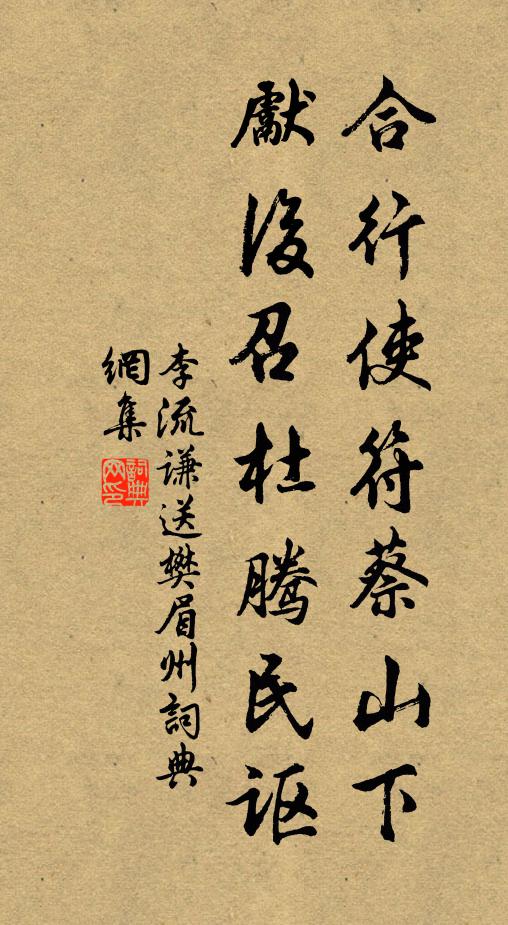 合行使符蔡山下
獻後召杜騰民讴
李流謙送樊眉州詞典
網集
詞典網印